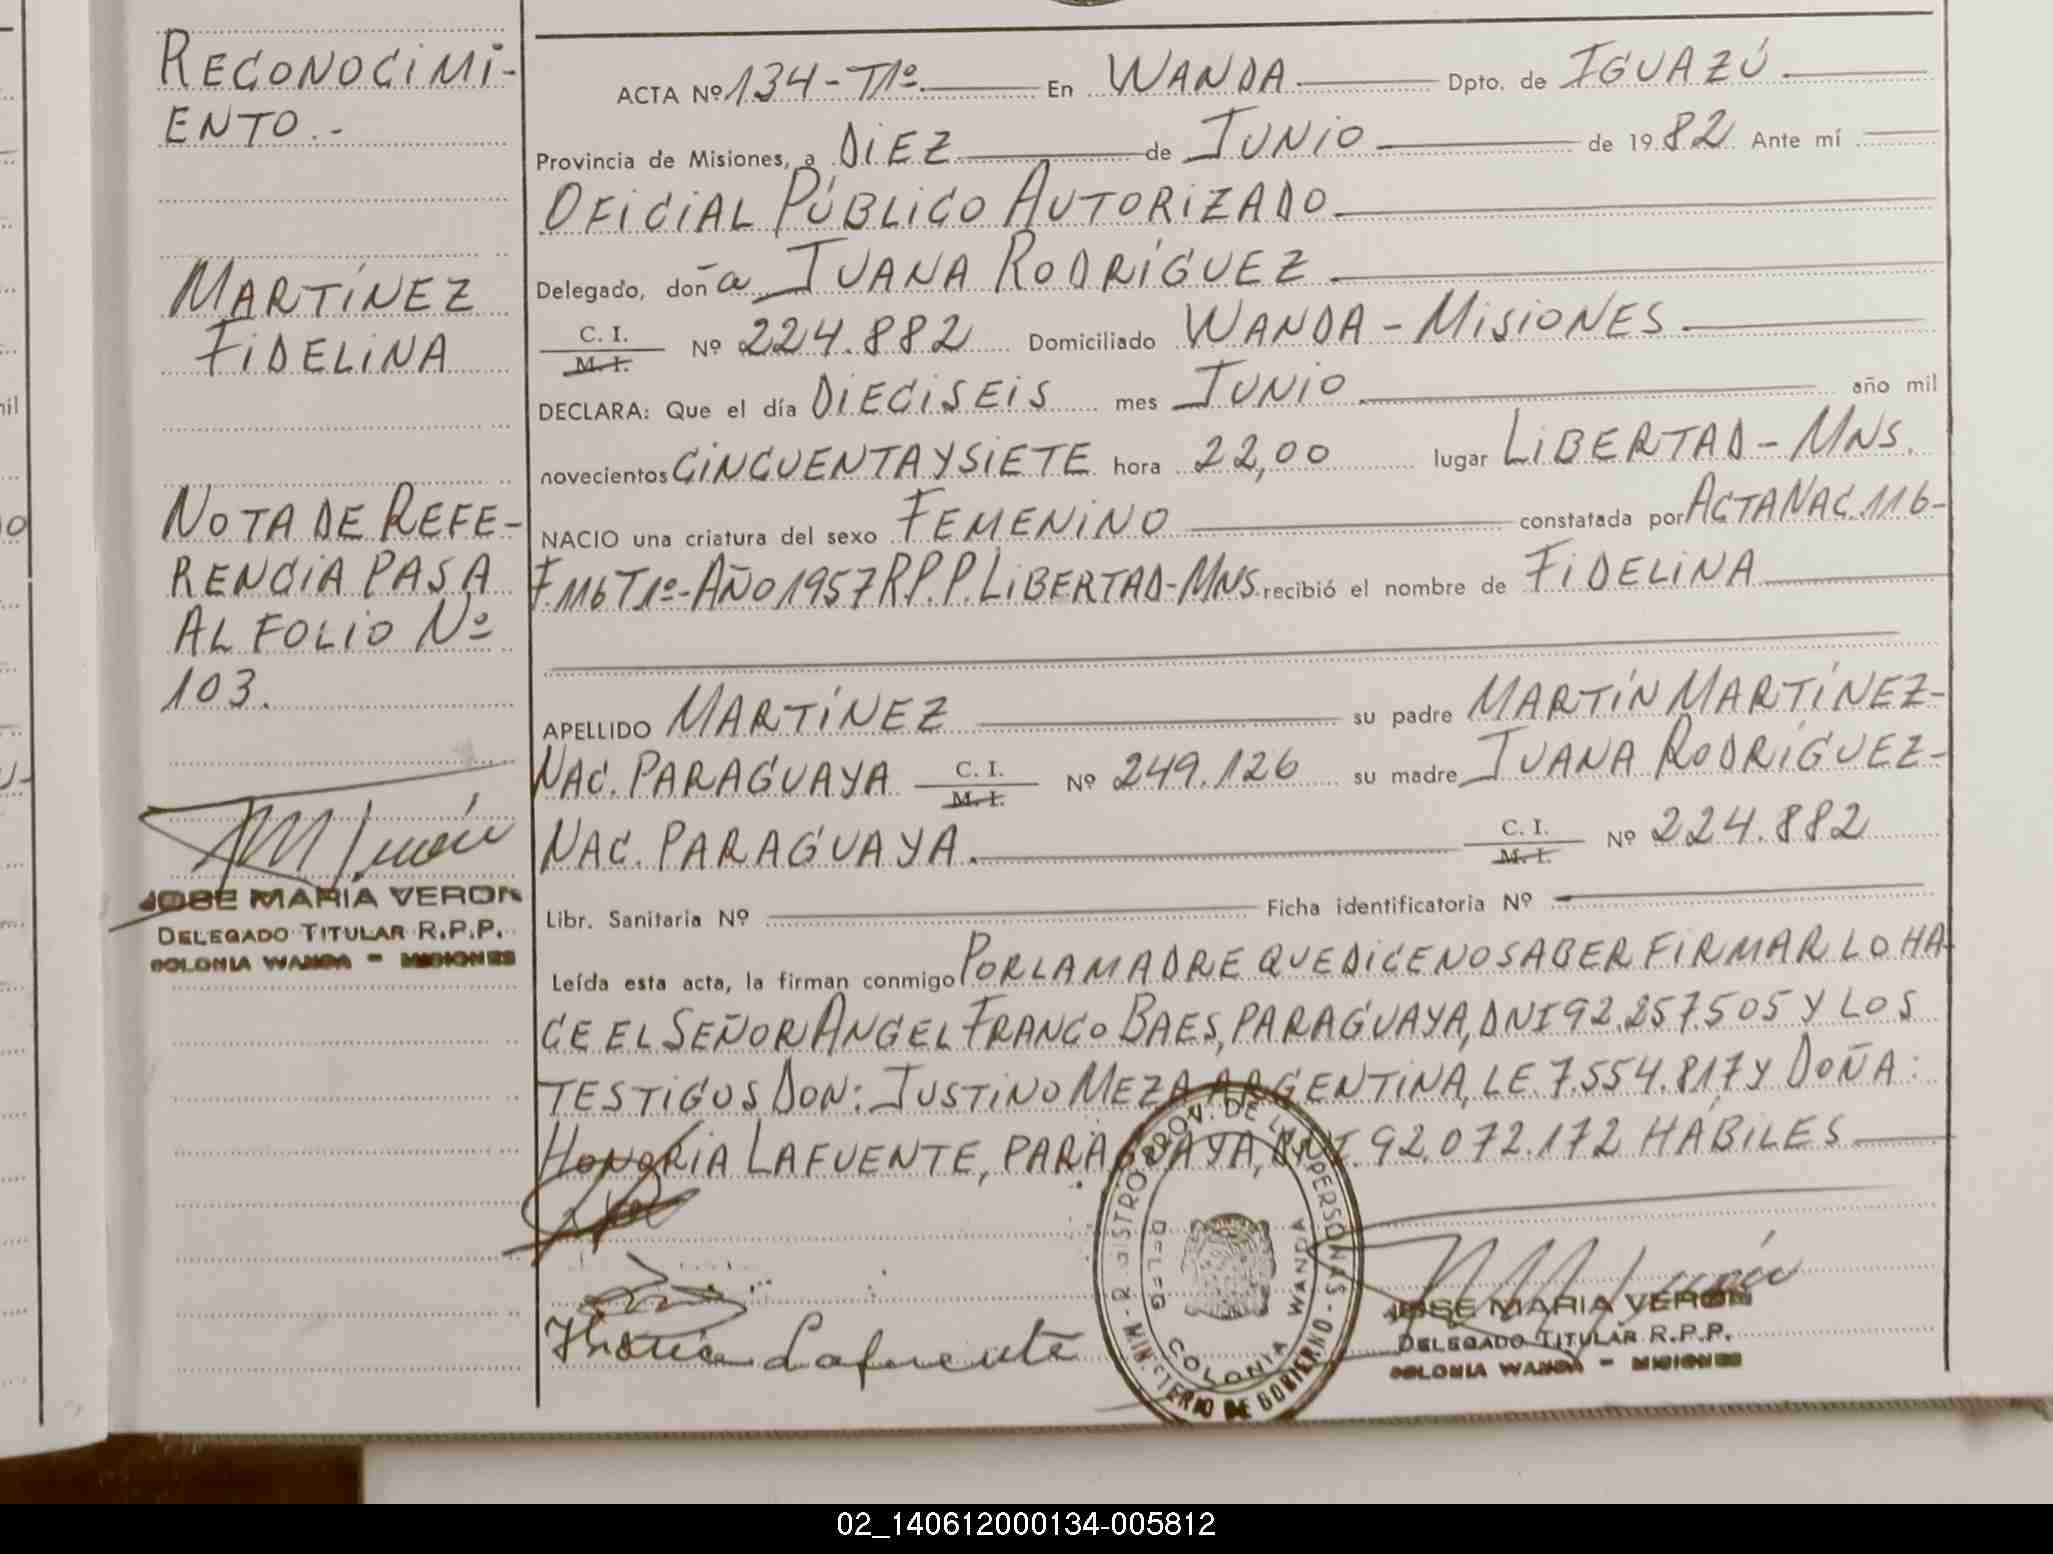 RECONOCIMI-
ENTO.-
MARTÍNEZ
FIDELINA
NOTA DE REFE-
RENCIA PASA
AL FOLIO Nº
103.
JOSE MARIA VERON
DELEGADO TITULAR R.P.P.
COLONIA WANDA - MISIONES
ACTA Nº 134-T1º En WANDA Dpto. de IGUAZÚ
Provincia de Misiones, a DIEZ de JUNIO de 1982 Ante mí
OFICIAL PÚBLICO AUTORIZADO
Delegado, doña JUANA RODRÍGUEZ
C. I. M. I. Nº 224.882 Domiciliado WANDA - MISIONES
DECLARA: Que el día DIECISEIS mes JUNIO año mil
novecientos CINCUENTA Y SIETE hora 22,00 lugar LIBERTAD - MNS.
NACIO una criatura del sexo FEMENINO constatada por ACTA NAC. 116-
F.116 T1º-AÑO 1957 R.P.P. LIBERTAD-MNS. recibió el nombre de FIDELINA
APELLIDO MARTÍNEZ su padre MARTÍN MARTÍNEZ-
NAC. PARAGUAYA C. I. M. I. Nº 249.126 su madre JUANA RODRÍGUEZ-
NAC. PARAGUAYA. C. I. M. I. Nº 224.882
Libr. Sanitaria Nº Ficha identificatoria Nº
Leída esta acta, la firman conmigo POR LA MADRE QUE DICE NO SABER FIRMAR LO HA-
CE EL SEÑOR ANGEL FRANCO BAES, PARAGUAYA, DNI 92.257505 Y LOS
TESTIGOS DON: JUSTINO MEZA ARGENTINA, LE 7.554.817 Y DOÑA:
HONORIA LAFUENTE, PARAGUAYA, DNI. 92.072.172 HÁBILES
Lafuente
REGISTRO PROV. DE LAS PERSONAS - MINISTERIO DE GOBIERNO -
DELEG. COLONIA WANDA
JOSE MARIA VERON
DELEGADO TITULAR R.P.P.
COLONIA WANDA - MISIONES
02_140612000134-005812